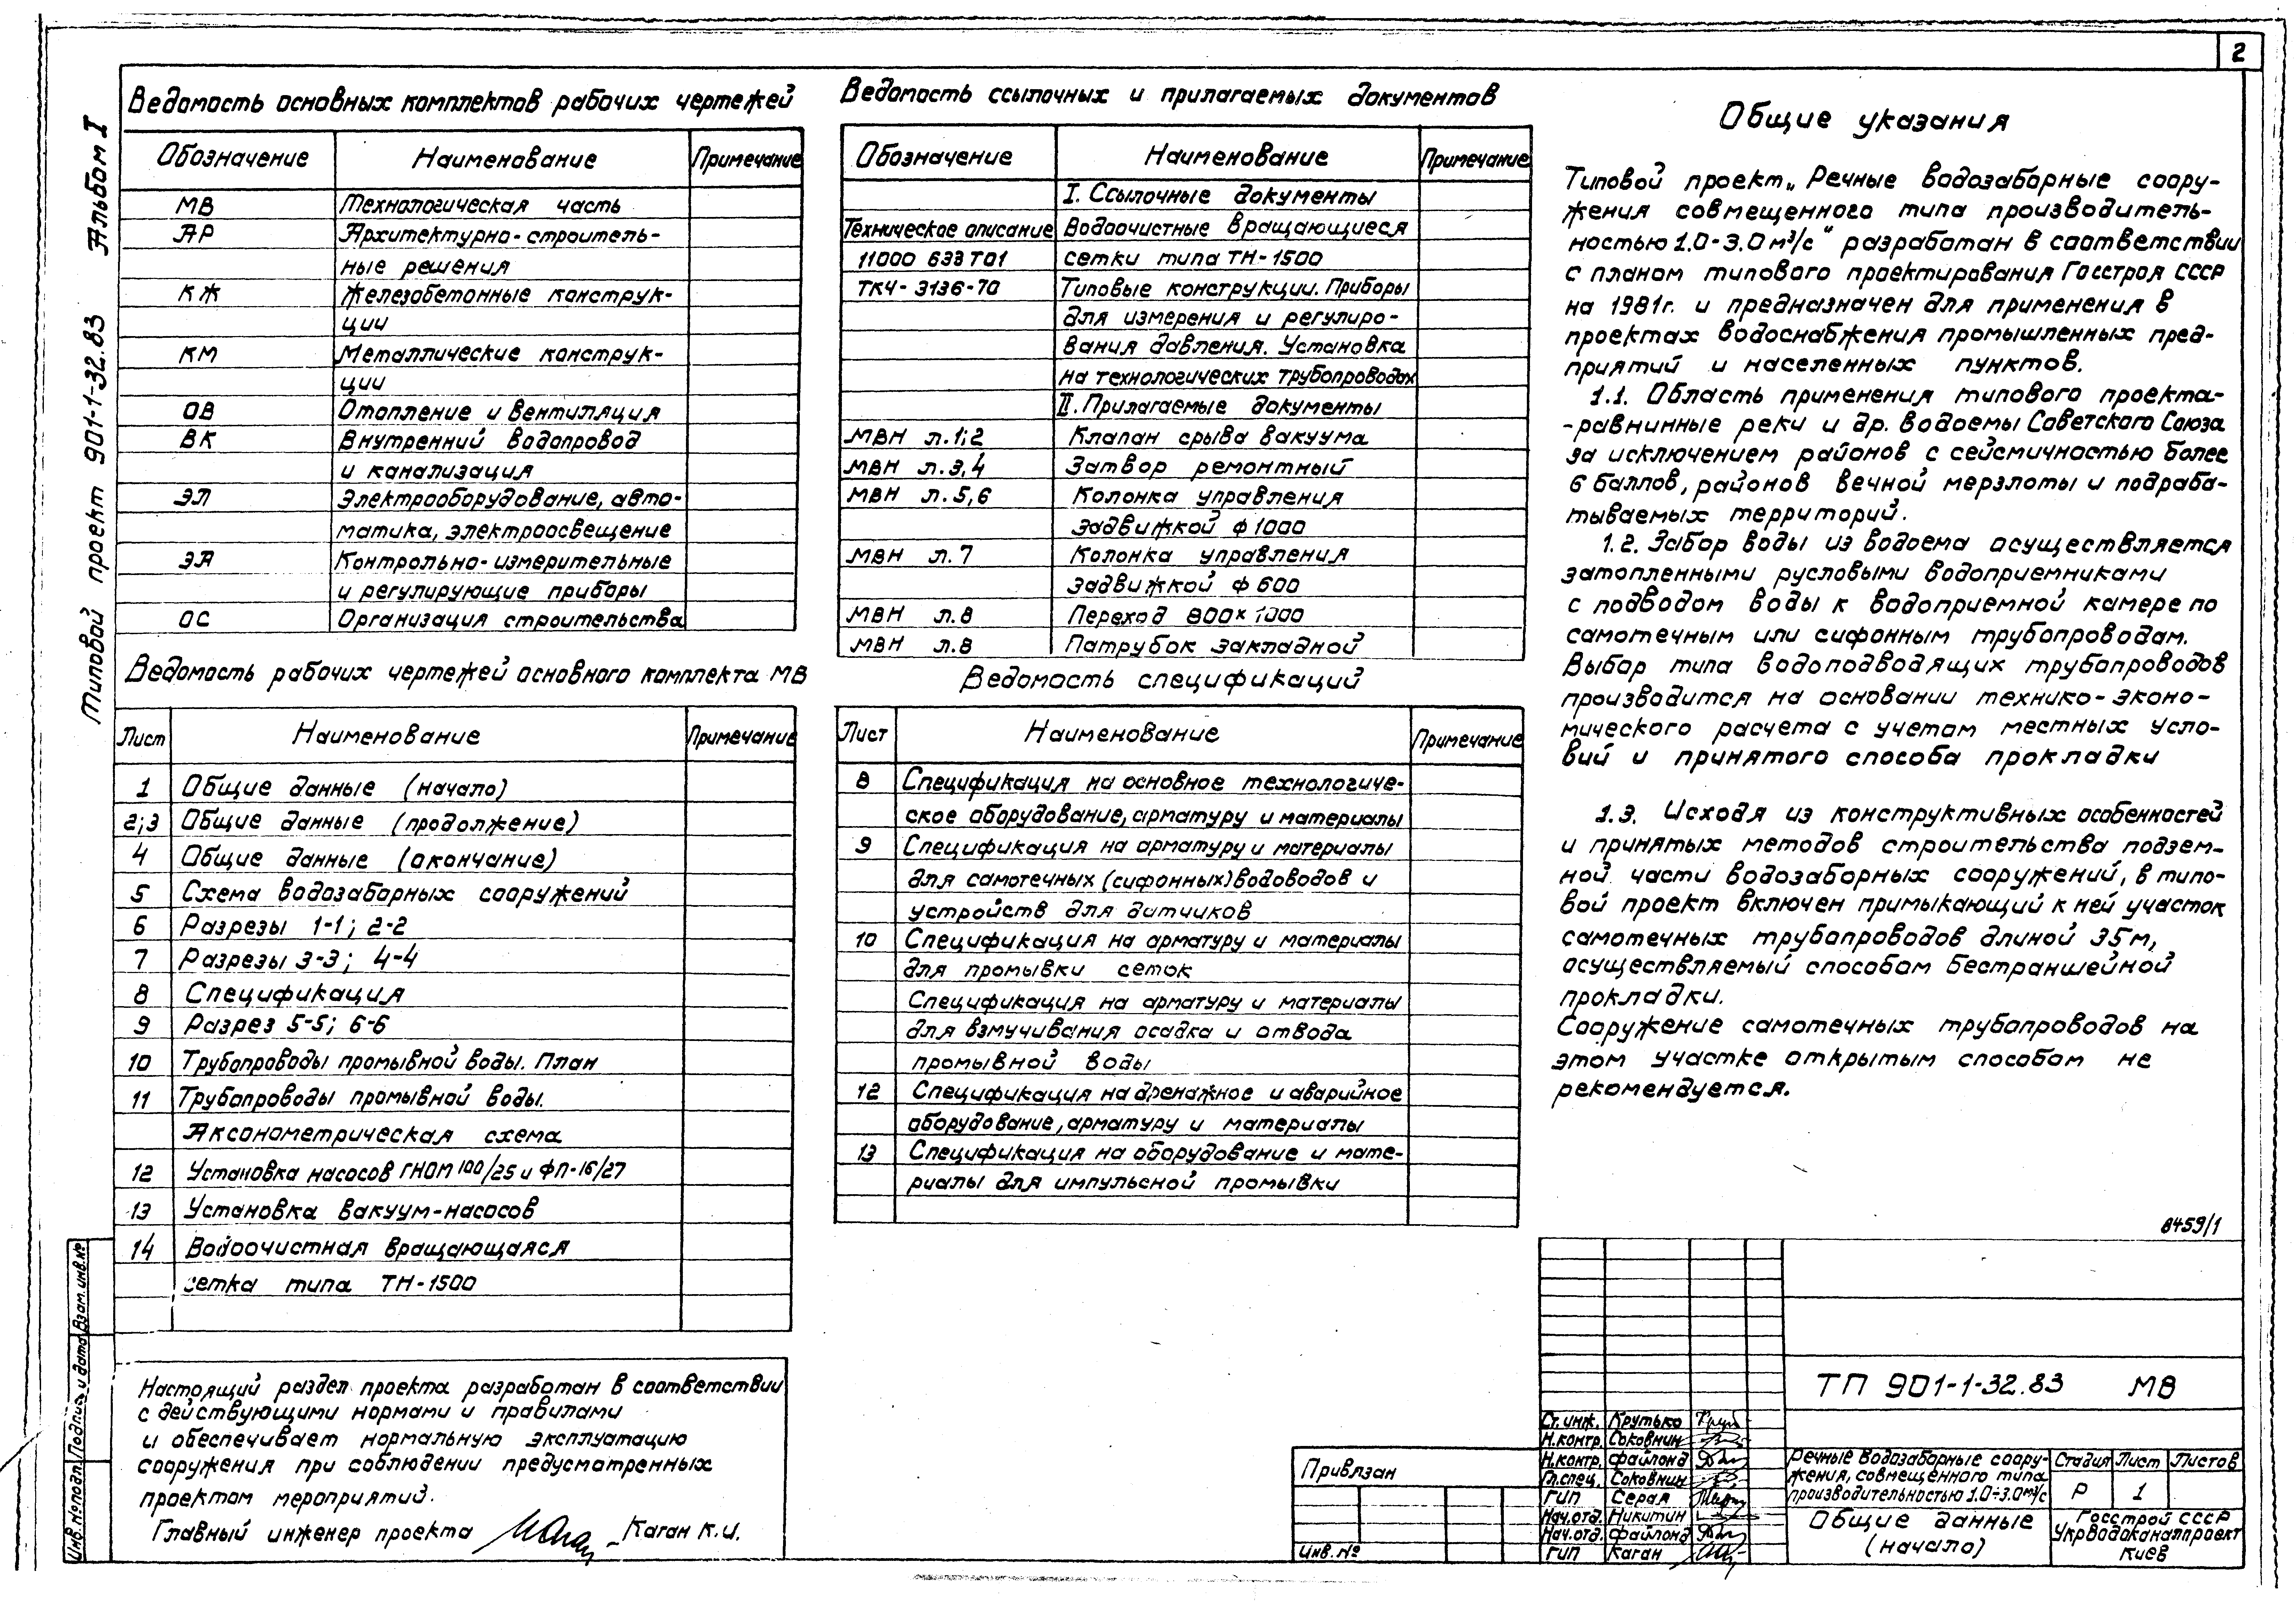 2
Альбом I
Типовой проект 901-1-32.83
Ведомость основных комплектов рабочих чертежей
Обозначение Наименование Примечание
МВ Технологическая часть
АР Архитектурно-строитель-
ные решения
КЖ Железобетонные конструк-
ции
КМ Металлические конструк-
ции
ОВ Отопление и вентиляция
ВК Внутренний водопровод
и канализация
ЭЛ Электрооборудование, авто-
матика, электроосвещение
ЭА Контрольно-измерительные
и регулирующие приборы
ОС Организация строительства
Ведомость рабочих чертежей основного комплекта МВ
Лист Наименование Примечание
1 Общие данные (начало)
2;3 Общие данные (продолжение)
4 Общие данные (окончание)
5 Схема водозаборных сооружений
6 Разрезы 1-1; 2-2
7 Разрезы 3-3; 4-4
8 Спецификация
9 Разрез 5-5; 6-6
10 Трубопроводы промывной воды. План
11 Трубопроводы промывной воды.
Аксонометрическая схема
12 Установка насосов ГНОМ 100/25 и ФП-16/27
13 Установка вакуум-насосов
14 Водоочистная вращающаяся
сетка типа ТН-1500
Настоящий раздел проекта разработан в соответствии
с действующими нормами и правилами
и обеспечивает нормальную эксплуатацию
сооружения при соблюдении предусмотренных
проектом мероприятий.
Главный инженер проекта Каган К.И.
Ведомость ссылочных и прилагаемых документов
Обозначение Наименование Примечание
I. Ссылочные документы
Техническое описание Водоочистные вращающиеся
11000 633 ТО1 сетки типа ТН-1500
ТК4-3136-70 Типовые конструкции. Приборы
для измерения и регулиро-
вания давления. Установка
на технологических трубопроводах
II. Прилагаемые документы
МВН л.1;2 Клапан срыва вакуума
МВН л.3,4 Затвор ремонтный
МВН л.5,6 Колонка управления
задвижкой ф 1000
МВН л.7 Колонка управления
задвижкой ф 600
МВН л.8 Переход 800×1000
МВН л.8 Патрубок закладной
Ведомость спецификаций
Лист Наименование Примечание
8 Спецификация на основное технологиче-
ское оборудование, арматуру и материалы
9 Спецификация на арматуру и материалы
для самотечных (сифонных) водоводов и
устройств для датчиков
10 Спецификация на арматуру и материалы
для промывки сеток
Спецификация на арматуру и материалы
для взмучивания осадка и отвода
промывной воды
12 Спецификация на дренажное и аварийное
оборудование, арматуру и материалы
13 Спецификация на оборудование и мате-
риалы для импульсной промывки
Общие указания
Типовой проект „Речные водозаборные соору-
жения совмещенного типа производитель-
ностью 1.0-3.0 м³/с“ разработан в соответствии
с планом типового проектирования Госстроя СССР
на 1981г. и предназначен для применения в
проектах водоснабжения промышленных пред-
приятий и населенных пунктов.
1.1. Область применения типового проекта-
-равнинные реки и др. водоемы Советского Союза
за исключением районов с сейсмичностью более
6 баллов, районов вечной мерзлоты и подраба-
тываемых территорий.
1.2. Забор воды из водоема осуществляется
затопленными русловыми водоприемниками
с подводом воды к водоприемной камере по
самотечным или сифонным трубопроводам.
Выбор типа водоподводящих трубопроводов
производится на основании технико-эконо-
мического расчета с учетом местных усло-
вий и принятого способа прокладки
1.3. Исходя из конструктивных особенностей
и принятых методов строительства подзем-
ной части водозаборных сооружений, в типо-
вой проект включен примыкающий к ней участок
самотечных трубопроводов длиной 35м,
осуществляемый способом бестраншейной
прокладки.
Сооружение самотечных трубопроводов на
этом участке открытым способом не
рекомендуется.
8459/1
ТП 901-1-32.83 МВ
Ст. инж. Крутько
Н.контр. Соковнин
Н.контр. Файлонд
Гл.спец. Соковнин
ГИП Серая
Нач.отд. Никитин
Нач.отд. Файлонд
ГИП Каган
Речные водозаборные соору-
жения, совмещенного типа
производительностью 1.0÷3.0м³/с
Стадия Лист Листов
Р 1
Общие данные
(начало)
Госстрой СССР
Укрводоканалпроект
Киев
Привязан
Инв. №
Инв.№подл. Подпись и дата Взам.инв.№